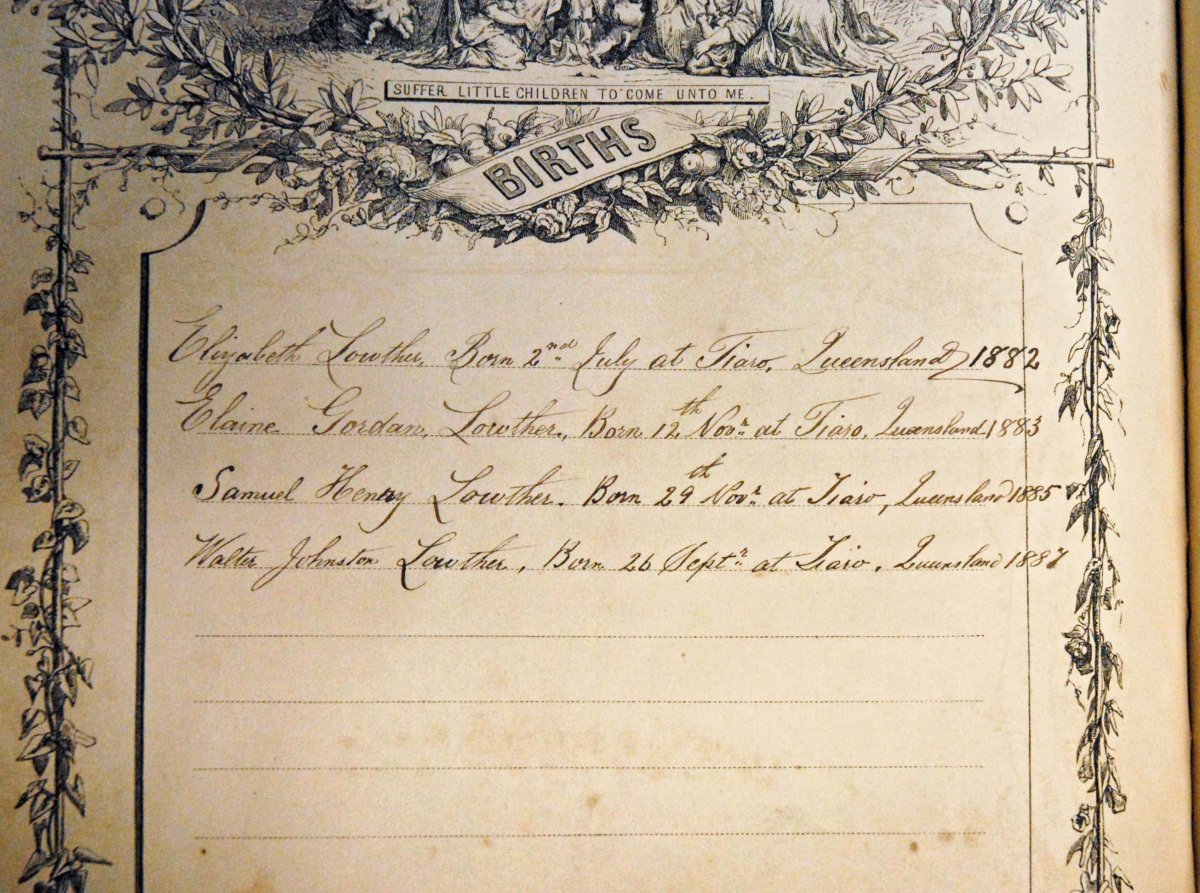 SUFFER LITTLE CHILDREN TO COME UNTO ME.
BIRTHS
Elizabeth Lowther, Born 2nd July at Tiaro, Queensland, 1882
Elaine Gordan, Lowther, Born 12th Novr at Tiaro, Queensland, 1883
Samuel Henry Lowther. Born 29th Novr at Tiaro, Queensland 1885
Walter Johnston Lowther, Born 26 Septr at Tiaro, Queensland 1887